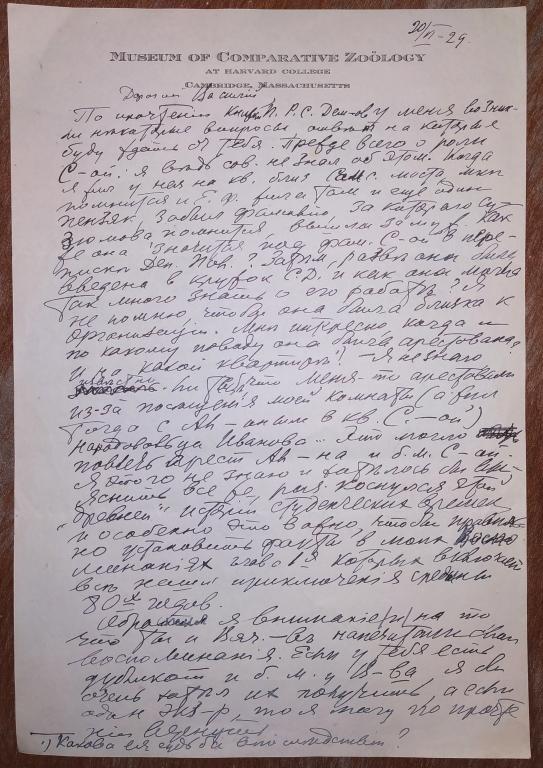 20/VI-29.
MUSEUM OF COMPARATIVE ZOÖLOGY
AT HARVARD COLLEGE
CAMBRIDGE, MASSACHUSETTS
Дорогой Василий
По прочтении книги П. Р.С. Дем-ов у меня возник-
ли некоторые вопросы ответ на которые
буду ждать от тебя. Прежде всего о роли
С-ой: я ведь сов. не знал об этом. Когда
я был у нея на кв. близ моста, мне
помнится и Е. Ф. была там и еще один
пензяк, забыл фамилию, за которого
помнится, вышла замуж. Как
же она значится под фам. С-ой в пере-
писки Деп. Пол.? Затем, разве она была
введена в кружок С.Д. и как она могла
так много знать о его работе? Я
не помню, чтобы она была близка к
организации. Мне интересно, когда и
по какому поводу она была арестована?
и на какой квартире? - Я не знаю
что меня-то арестовали
из-за посещения моей комнаты (а я был
тогда с Ав-аным в кв. С.-ой¹)
народовольца Иванова... Это могло
повлечь арест Ав-на и б.м. С-ой.
Я этого не знаю и хотелось бы выя-
снить все это, раз коснулся этой
"древней" истории студенческих времен
и особенно это важно, чтобы правиль-
но установить факты в моих воспо-
минаниях, глава I я которых включает
все наши приключения средины
80х годов.
Обратил я внимание (и) на то
что ты и Вяч.-въ напечатали свои
воспоминания. Если у тебя есть
дубликат и б. м. у В-ва, я бы
очень хотел их получить, а если
один экз-р, то я могу по прочте-
нии вернуть.
¹) Какова ея судьба впоследствии?